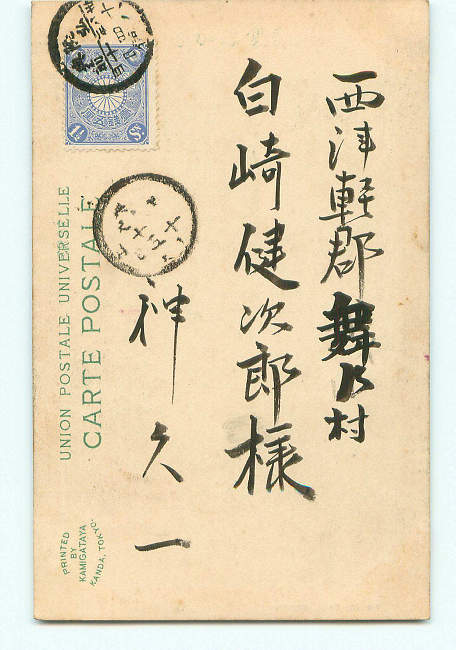 西津軽郡舞乃村
白崎健次郎様
神久一
UNION POSTALE UNIVERSELLE
CARTE POSTALE
PRINTED
BY
KAMIGATAYA
KANDA, TOKYO.
1½ Sn.